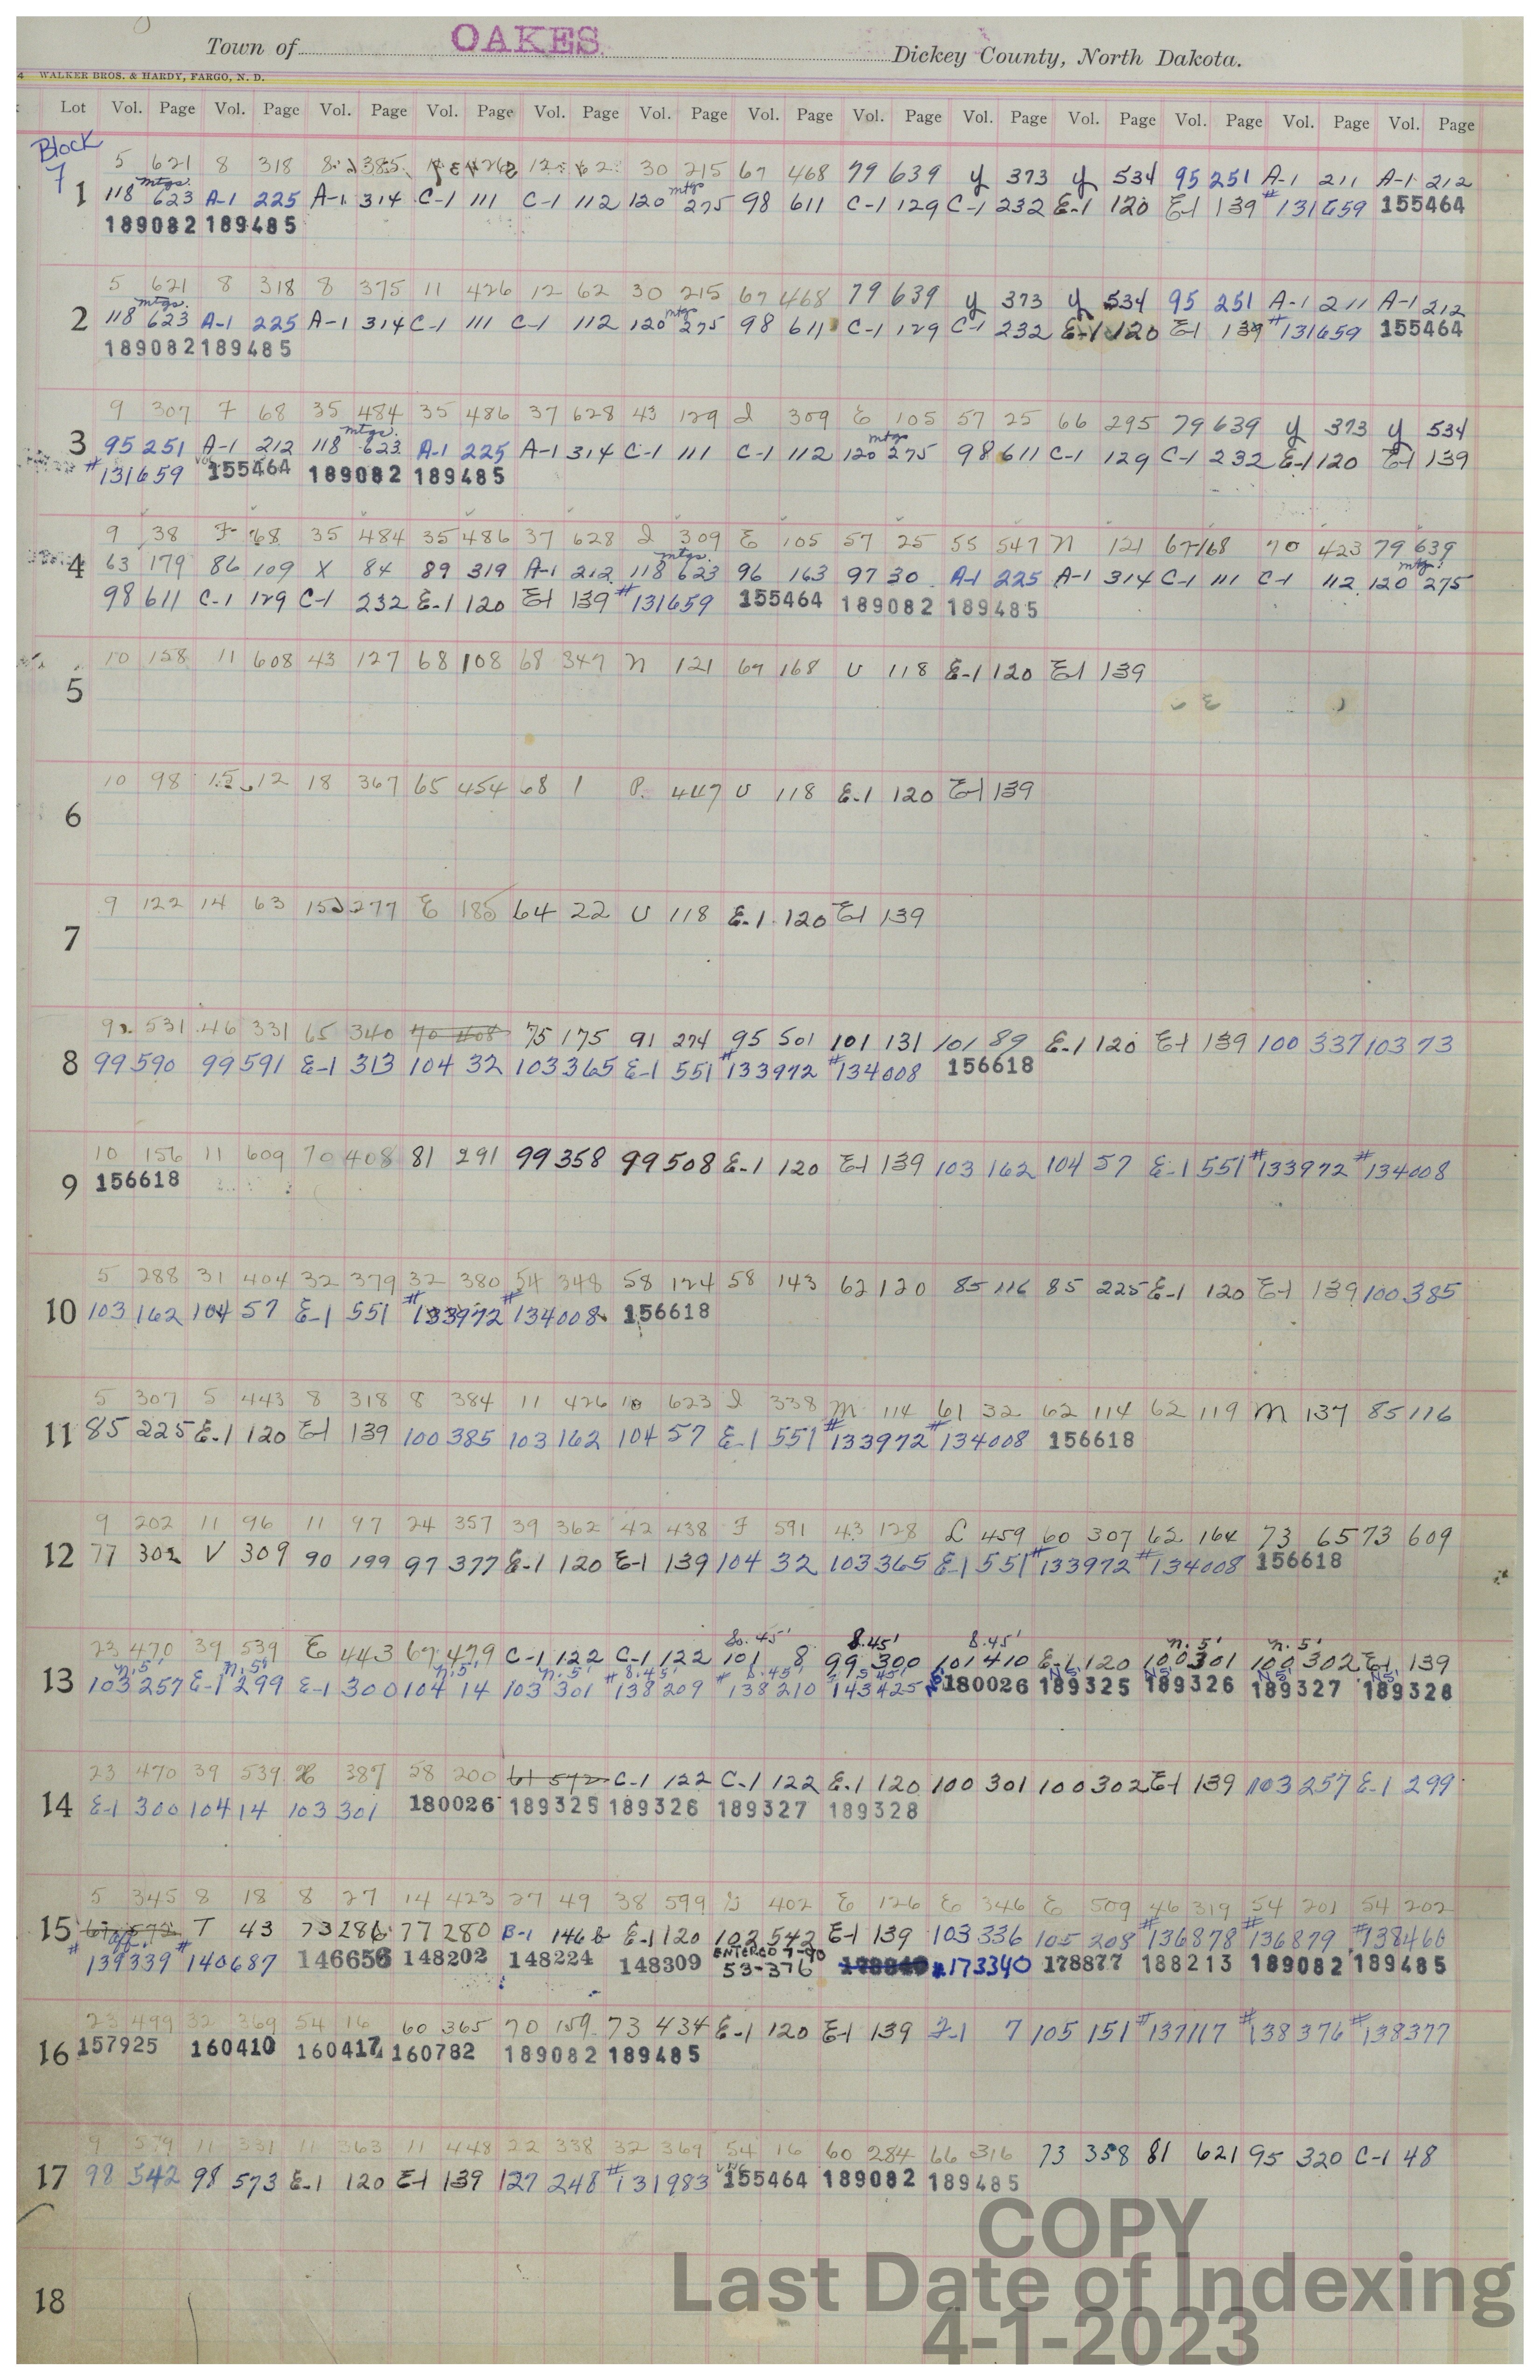 Town of OAKES Dickey County, North Dakota.
4 WALKER BROS. & HARDY, FARGO, N. D.
Lot Vol. Page Vol. Page Vol. Page Vol. Page Vol. Page Vol. Page Vol. Page Vol. Page Vol. Page Vol. Page Vol. Page Vol. Page Vol. Page
Block
7
5 621 8 318 8 385 30 215 67 468 79 639 y 373 y 534 95 251 A-1 211 A-1 212
mtgs. mtgs
1 118 623 A-1 225 A-1 314 C-1 111 C-1 112 120 275 98 611 C-1 129 C-1 232 E-1 120 E-1 139 #131659 155464
189082 189485
5 621 8 318 8 375 11 426 12 62 30 215 67 468 79 639 y 373 y 534 95 251 A-1 211 A-1 212
mtgs. mtgs
2 118 623 A-1 225 A-1 314 C-1 111 C-1 112 120 275 98 611 C-1 129 C-1 232 E-1 120 E-1 139 #131659 155464
189082 189485
9 307 7 68 35 484 35 486 37 628 43 129 d 309 E 105 57 25 66 295 79 639 y 373 y 534
mtgs. mtgs
3 95 251 A-1 212 118 623 A-1 225 A-1 314 C-1 111 C-1 112 120 275 98 611 C-1 129 C-1 232 E-1 120 E-1 139
#131659 155464 189082 189485
9 38 F 68 35 484 35 486 37 628 d 309 E 105 57 25 55 547 n 121 67 168 70 423 79 639
mtgs. mtgs.
4 63 179 86 109 X 84 89 319 A-1 212 118 623 96 163 97 30 A-1 225 A-1 314 C-1 111 C-1 112 120 275
98 611 C-1 129 C-1 232 E-1 120 E-1 139 #131659 155464 189082 189485
10 158 11 608 43 127 68 108 68 347 n 121 67 168 U 118 E-1 120 E-1 139
5
10 98 15 12 18 367 65 454 68 1 P. 447 U 118 E-1 120 E-1 139
6
9 122 14 63 15 277 E 185 64 22 U 118 E-1 120 E-1 139
7
9 531 46 331 65 340 70 408 75 175 91 274 95 501 101 131 101 89 E-1 120 E-1 139 100 337 103 73
8 99 590 99 591 E-1 313 104 32 103 365 E-1 551 #133972 #134008 156618
10 156 11 609 70 408 81 291 99 358 99 508 E-1 120 E-1 139 103 162 104 57 E-1 551 #133972 #134008
9 156618
5 288 31 404 32 379 32 380 54 348 58 124 58 143 62 120 85 116 85 225 E-1 120 E-1 139 100 385
10 103 162 104 57 E-1 551 #133972 #134008 156618
5 307 5 443 8 318 8 384 11 426 10 623 d 338 m 114 61 32 62 114 62 119 m 137 85 116
11 85 225 E-1 120 E-1 139 100 385 103 162 104 57 E-1 551 #133972 #134008 156618
9 202 11 96 11 97 24 357 39 362 42 438 F 591 43 128 L 459 60 307 62 164 73 65 73 609
12 77 302 V 309 90 199 97 377 E-1 120 E-1 139 104 32 103 365 E-1 551 #133972 #134008 156618
So. 45' S.45' S.45' n. 5' n. 5'
23 470 39 539 E 443 67 479 C-1 122 C-1 122 101 8 99 300 101 410 E-1 120 100 301 100 302 E-1 139
n.5' n.5' n.5' n.5' S.45' S.45' S 45' N5' N5' N5' N5'
13 103 257 E-1 299 E-1 300 104 14 103 301 #138209 #138210 143425 180026 189325 189326 189327 189328
23 470 39 539 H 387 58 200 61 592 C-1 122 C-1 122 E-1 120 100 301 100 302 E-1 139 103 257 E-1 299
14 E-1 300 104 14 103 301 180026 189325 189326 189327 189328
5 345 8 18 8 27 14 423 27 49 38 599 402 E 126 E 346 E 509 46 319 54 201 54 202
15 T 43 73 286 77 280 B-1 146 E-1 120 102 542 E-1 139 103 336 105 208 #136878 #136879 #138460
#139339 #140687 146656 148202 148224 148309 ENTERED 7-90 53-376 #173340 178877 188213 189082 189485
23 499 32 369 54 16 60 365 70 159 73 434 E-1 120 E-1 139 7-1 7 105 151 #137117 #138376 #138377
16 157925 160410 160417 160782 189082 189485
9 579 11 331 11 363 11 448 22 338 32 369 54 16 60 284 66 316 73 358 81 621 95 320 C-1 48
17 98 542 98 573 E-1 120 E-1 139 127 248 #131983 155464 189082 189485
18
COPY
Last Date of Indexing
4-1-2023